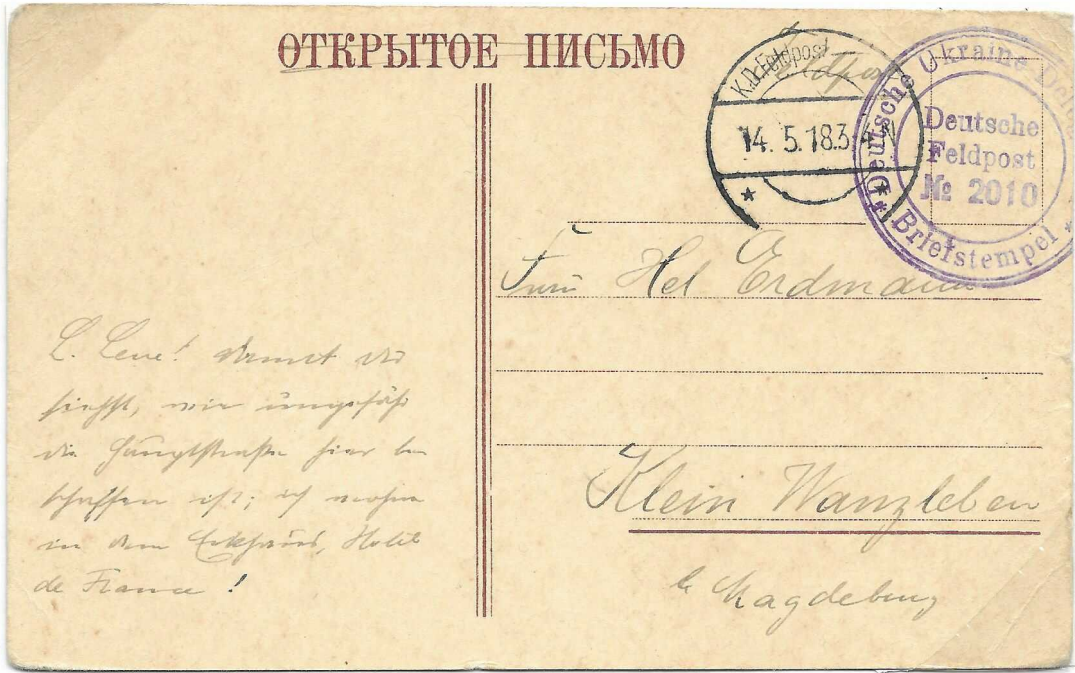 ОТКРЫТОЕ ПИСЬМО
Feldpost
K.D. Feldpost
14. 5. 18 3-4 N
Deutsche Ukraine
Deutsche
Feldpost
№ 2010
* Briefstempel *
Frau Hel Erdmann
Klein Wanzleben
b. Magdeburg
L. Lene! damit du
siehst, wie ungefähr
die Hauptstraße hier be
schaffen ist; ich wohne
in dem Eckhaus, Hotel
de France!